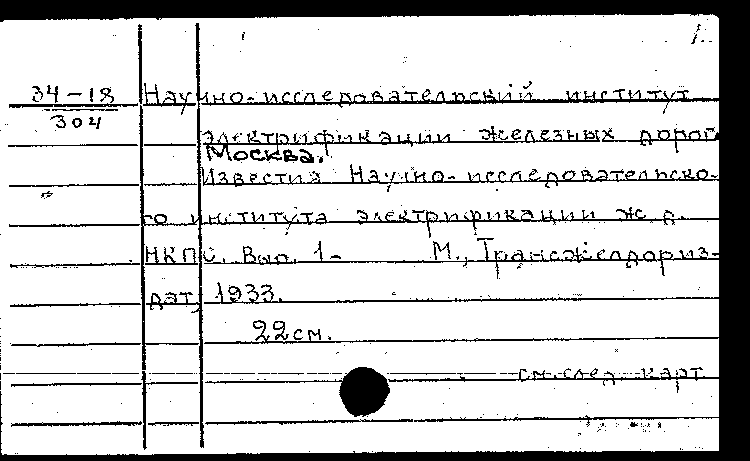 1.
34-18
304
Научно-исследовательский институт
электрификации железных дорог.
Москва.
Известия Научно-исследовательско-
го института электрификации ж.д.
НКПС. Вып. 1- М., Трансжелдориз-
дат, 1933.
22 см.
см. след. карт